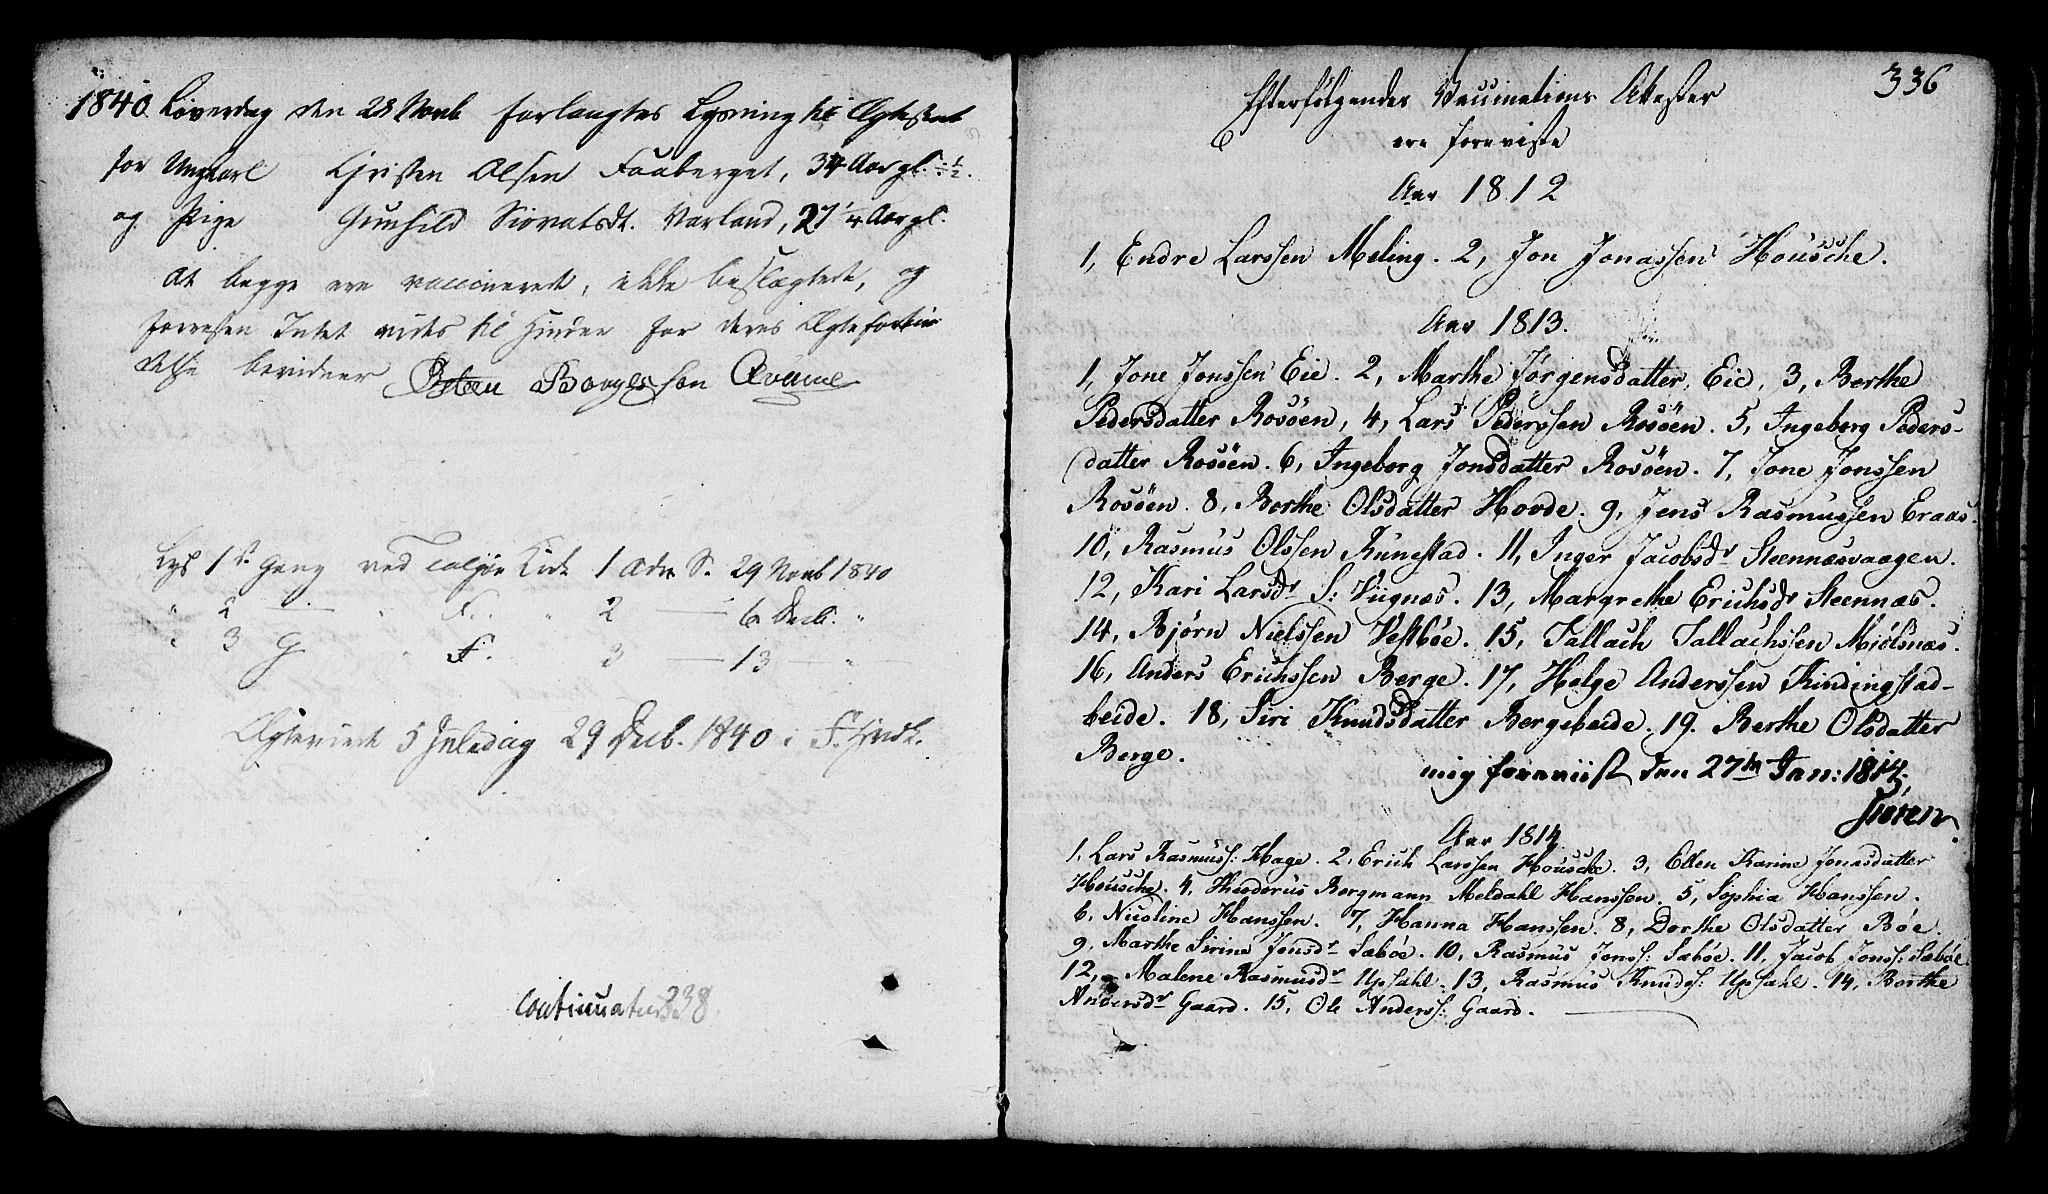 1840 Löverdag den 28 Novb forlangtes Lysning til Ægteskab
for Ungkarl Christen Olsen Faaberget, 34 Aar gl. ÷ ½.
og Pige Gunhild Siovatsdt. Varland, 27 ¼ Aar gl.
At begge ere vaccinerede, ikke beslægtede, og
forresten Intet vides til Hinder for deres Ægteforbin
delse bevidner Østen Baardsson Qvame
Lyst 1ste Gang ved Talgöe Kirke 1 Adv. S. 29 Novb 1840
" 2 — " F. " 2 — 6 Decb. "
" 3 G " F. 3 — 13 — "
Ægteviede 5 Juledag 29 Decb. 1840 i F. Hvdk.
Continuatur 338.
336
Efterfølgende Vaccinations Attester
ere foreviste
Aar 1812
1, Endre Larssen Meling. 2, Jon Jonassen Housche.
Aar 1813.
1, Jone Jonssen Eie. 2, Marthe Jørgensdatter Eie, 3, Berthe
Pedersdatter Rosöen, 4, Lars Pederssen Rosöen. 5, Ingeborg Peders-
datter Rosöen. 6, Ingeborg Jonsdatter Rosöen. 7, Jone Jonssen
Rosöen. 8, Berthe Olsdatter Hovde. 9, Jens Rasmussen Eraas.
10, Rasmus Olssen Runestad. 11, Inger Jacobsdr Steennæsvaagen.
12, Kari Larsdr S: Viignæs. 13, Margrethe Erichsdr Steennæs.
14, Bjørn Nielssen Vestbøe. 15, Tallach Tallachssen Miölsnæs.
16, Anders Erichssen Berge. 17, Helge Anderssen Kindingstad-
beide. 18, Siri Knudsdatter Bergebeide. 19. Berthe Olsdatter
Berge.
mig foreviist den 27de Jan: 1814.
Sören
Aar 1814
1, Lars Rasmuss: Hage. 2, Erich Larssen Housche. 3, Ellen Karine Jonasdatter
Housche. 4, Theodorus Bergmann Meldahl Hanssen. 5, Sophia Hanssen.
6, Nicoline Hanssen. 7, Hanna Hanssen. 8, Dorthe Olsdatter Bøe.
9, Marthe Sirine Jonsdr Sæbøe. 10, Rasmus Jonss: Sæbøe. 11, Jacob Jonss: Sæbøe.
12, Malene Rasmusdr Upsahl. 13, Rasmus Knuds: Upsahl. 14, Berthe
Andersdr Gaard. 15, Ole Anderss: Gaard.